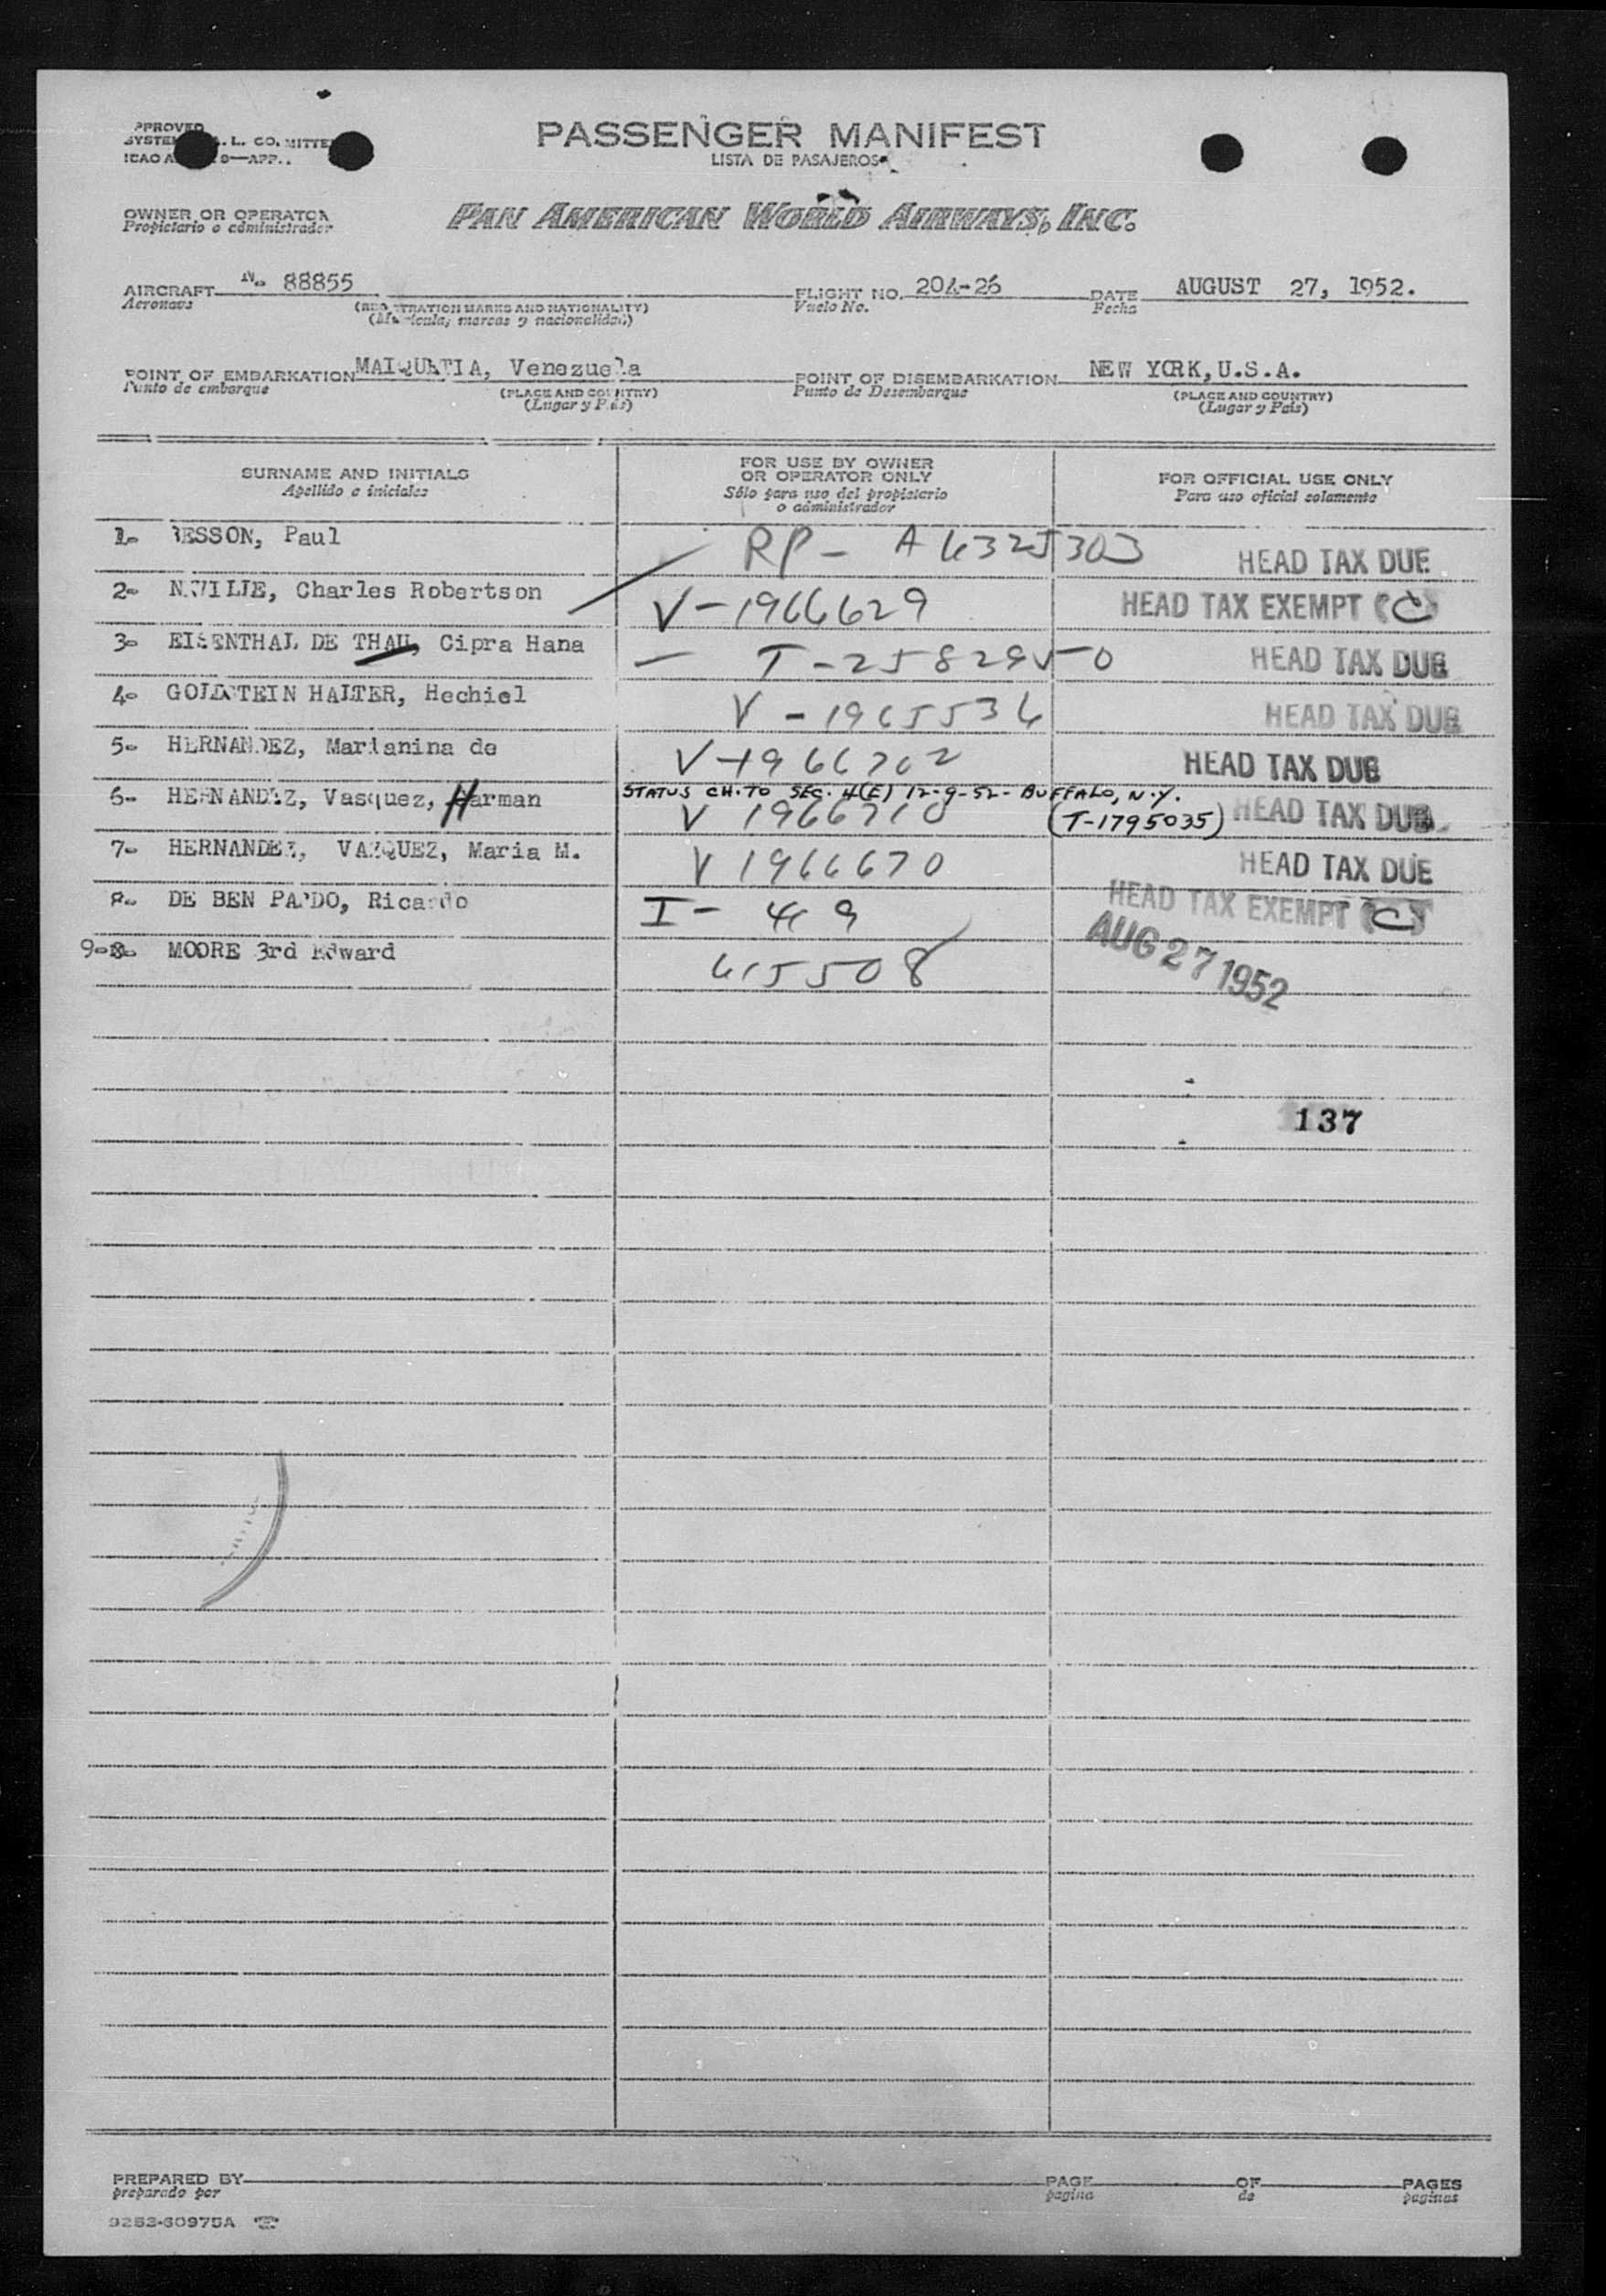 PASSENGER MANIFEST
LISTA DE PASAJEROS
OWNER OR OPERATOR
Propietario o administrador
PAN AMERICAN WORLD AIRWAYS, INC.
AIRCRAFT N. 88855
Aeronave
(REGISTRATION MARKS AND NATIONALITY)
(Matricula, marcas y nacionalidad)
FLIGHT NO. 204-26
Vuelo No.
DATE AUGUST 27, 1952.
Fecha
POINT OF EMBARKATION MAIQUETIA, Venezuela
Punto de embarque
(PLACE AND COUNTRY)
(Lugar y País)
POINT OF DISEMBARKATION NEW YORK, U.S.A.
Punto de Desembarque
(PLACE AND COUNTRY)
(Lugar y País)
SURNAME AND INITIALS
Apellido e iniciales
FOR USE BY OWNER
OR OPERATOR ONLY
Sólo para uso del propietario
o administrador
FOR OFFICIAL USE ONLY
Para uso oficial solamente
1- BESSON, Paul RP- A6325303 HEAD TAX DUE
2- Charles Robertson V-1966629 HEAD TAX EXEMPT (C)
3- EISENTHAL DE THAU, Cipra Hana T-2582950 HEAD TAX DUE
4- GOLDSTEIN HALTER, Hechiel V-1965536 HEAD TAX DUE
5- HERNANDEZ, Marianina de V-1966702 HEAD TAX DUE
STATUS CH. TO SEC. 4(E) 12-9-52- BUFFALO, N.Y.
6- HERNANDEZ, Vasquez, Harman V 1966710 (T-1795035) HEAD TAX DUE
7- HERNANDEZ, VAZQUEZ, Maria M. V 1966670 HEAD TAX DUE
8- DE BEN PARDO, Ricardo I- 419 HEAD TAX EXEMPT (C)
9- MOORE 3rd Edward 615508
AUG 27 1952
137
PREPARED BY
preparado por
PAGE OF PAGES
pagina de paginas
9263-60975A